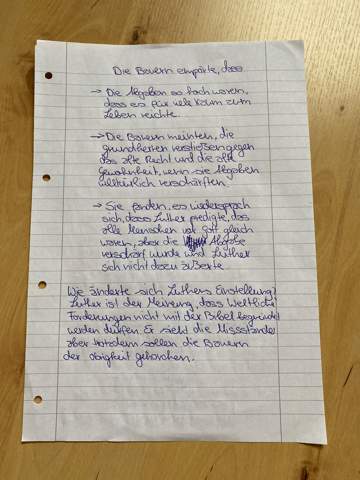 Die Bauern empörte, dass
→ Die Abgaben so hoch waren,
dass es für viele kaum zum
Leben reichte.
→ Die Bauern meinten, die
grundherren verstießen gegen
das alte Recht und die alte
Gewohnheit, wenn sie Abgaben
willkürlich verschärften
→ Sie fanden, es wiedersprach
sich, dass Luther predigte, das
alle Menschen vor Gott gleich
waren, aber die Abgabe
verschärf wurde und Luther
sich nicht dazu äußerte
Wie änderte sich Luthers Einstellung?
Luther ist der Meinung, dass Weltliche
Forderungen nicht mit der Bibel begründet
werden dürfen. Er sieht die Missstände
aber trotzdem sollen die Bauern
der obigkeit gehorchen.